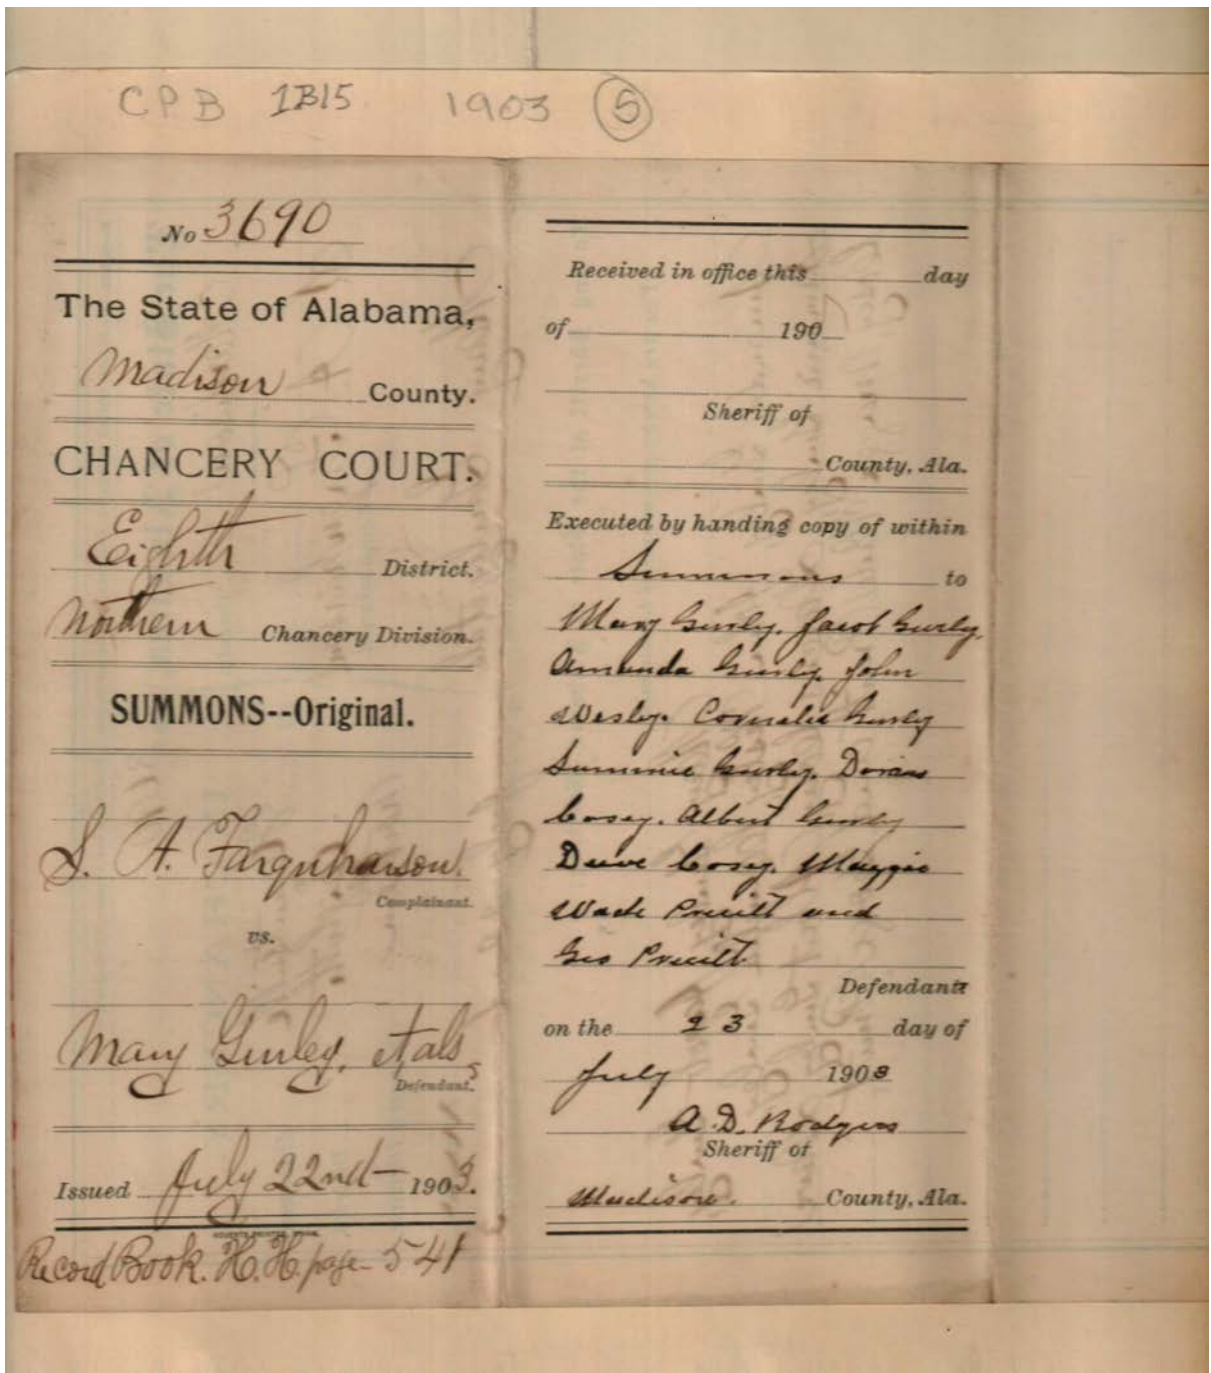 CPB 1B15 1903 5
No 3690
The State of Alabama,
Madison County.
CHANCERY COURT.
Eighth District.
Northern Chancery Division.
SUMMONS--Original.
S. A. Farquharson.
Complainant.
vs.
Mary Gurley, et als,
Defendants.
Issued July 22nd 1903.
Record Book. H.H. page 541
Received in office this day
of 190
Sheriff of
County, Ala.
Executed by handing copy of within
Summons to
Mary Gurley. Jacob Gurley.
Amanda Gurley. John
Wesley. Cornelie Gurley
Gurley.
Cosey. Albert Gurley
Cosey. Maggie
Wade Pruitt and
Geo Pruitt
Defendants
on the 23 day of
July 1903
A.D. Rodgers
Sheriff of
Madison. County, Ala.